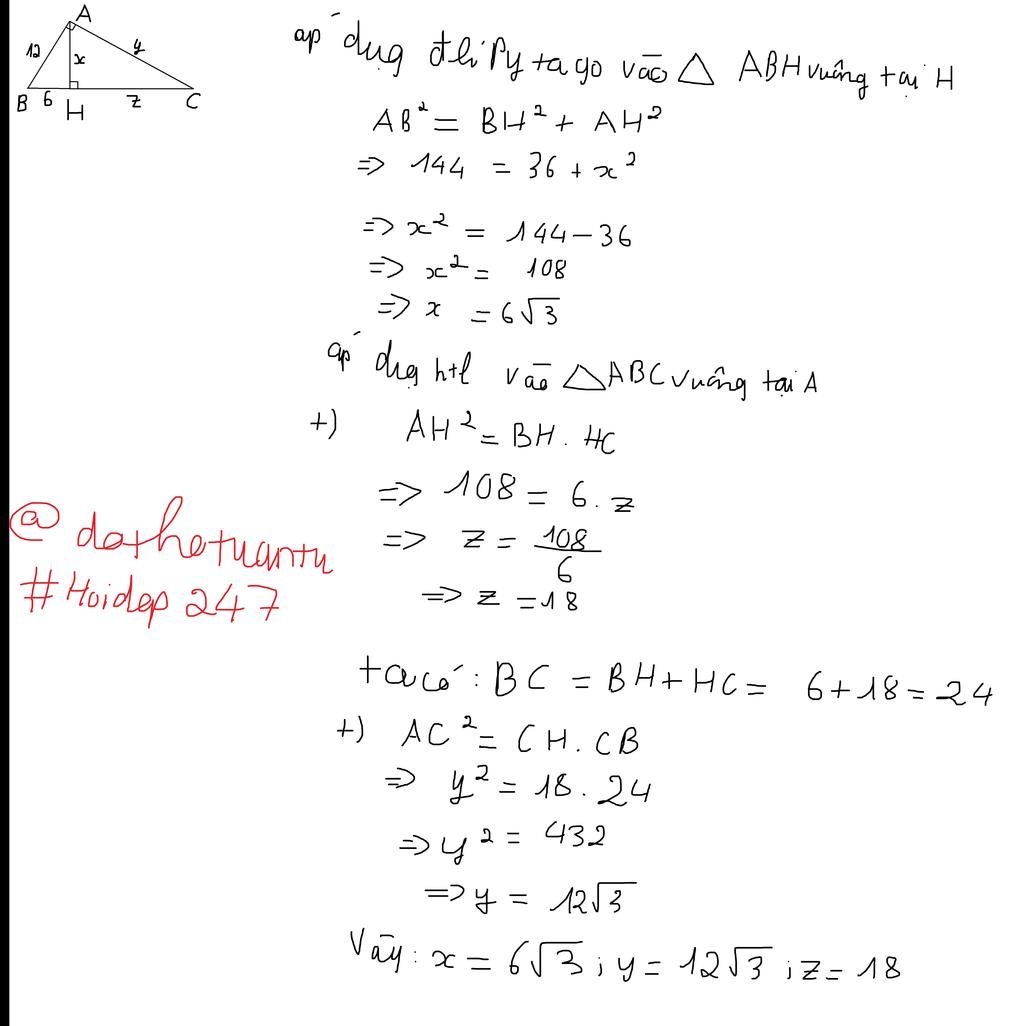 A
12
x
y
B
6
H
z
C
áp dụg đlí Py tago vào △ ABH vuông tại H
AB² = BH² + AH²
=> 144 = 36 + x²
=> x² = 144 - 36
=> x² = 108
=> x = 6√3
áp dụg htl vào △ABC vuông tại A
+) AH² = BH . HC
=> 108 = 6 . z
=> z = 108/6
=> z = 18
@dathetuantu
#Hoidap 247
ta có : BC = BH + HC = 6 + 18 = 24
+) AC² = CH . CB
=> y² = 18 . 24
=> y² = 432
=> y = 12√3
Vậy : x = 6√3 ; y = 12√3 ; z = 18